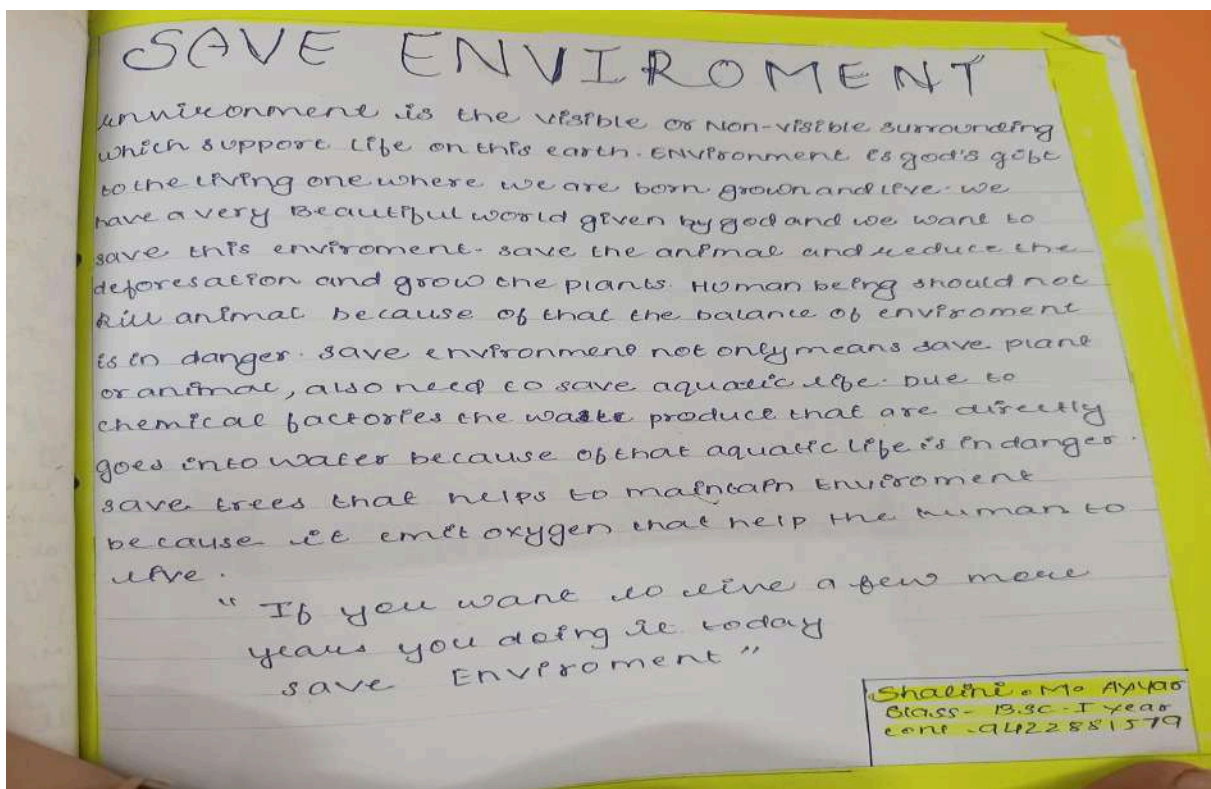 SAVE ENVIROMENT
unvironment is the visible or Non-visible surrounding
which support life on this earth. Environment is god's gift
to the living one where we are born. grown and live. we
have a very Beautiful world given by god and we want to
save this enviroment. save the animal and reduce the
deforesation and grow the plants. Human being should not
kill animal because of that the balance of enviroment
is in danger. save environment not only means save plant
or animal, also need to save aquatic life. Due to
chemical factories the waste produce that are directly
goes into water because of that aquatic life is in danger.
save trees that helps to maintain Enviroment
because it emit oxygen that help the human to
live.
" If you want to live a few more
years you doing it today
save Enviroment "
Shalini. M. Ayyar
Class- B.SC. I year
cont -9422881579